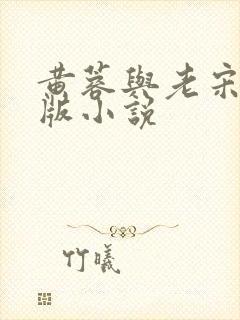 黄蓉與老宋
版小說
竹曦